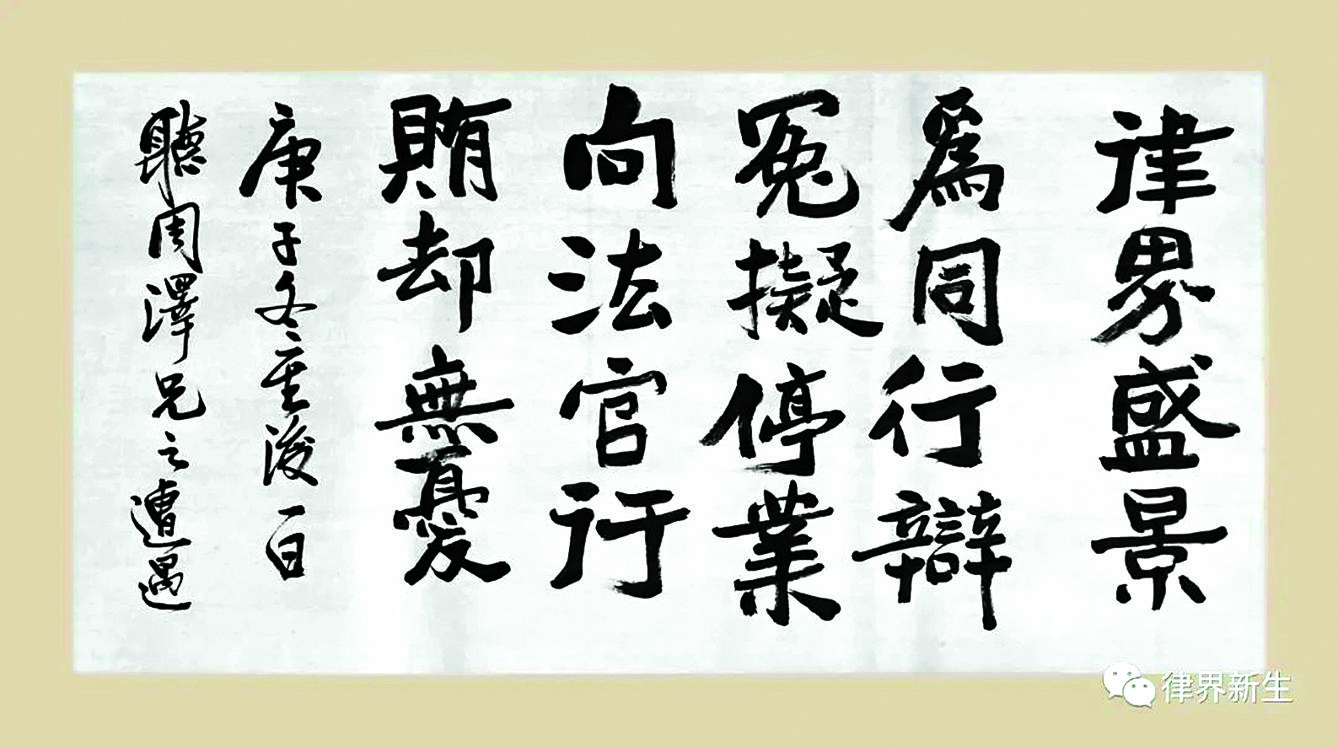 律界盛景
爲同行辯
冤擬停業
向法官行
賄却無憂
庚子冬至後一日
聽周澤兄之遭遇
律界新生